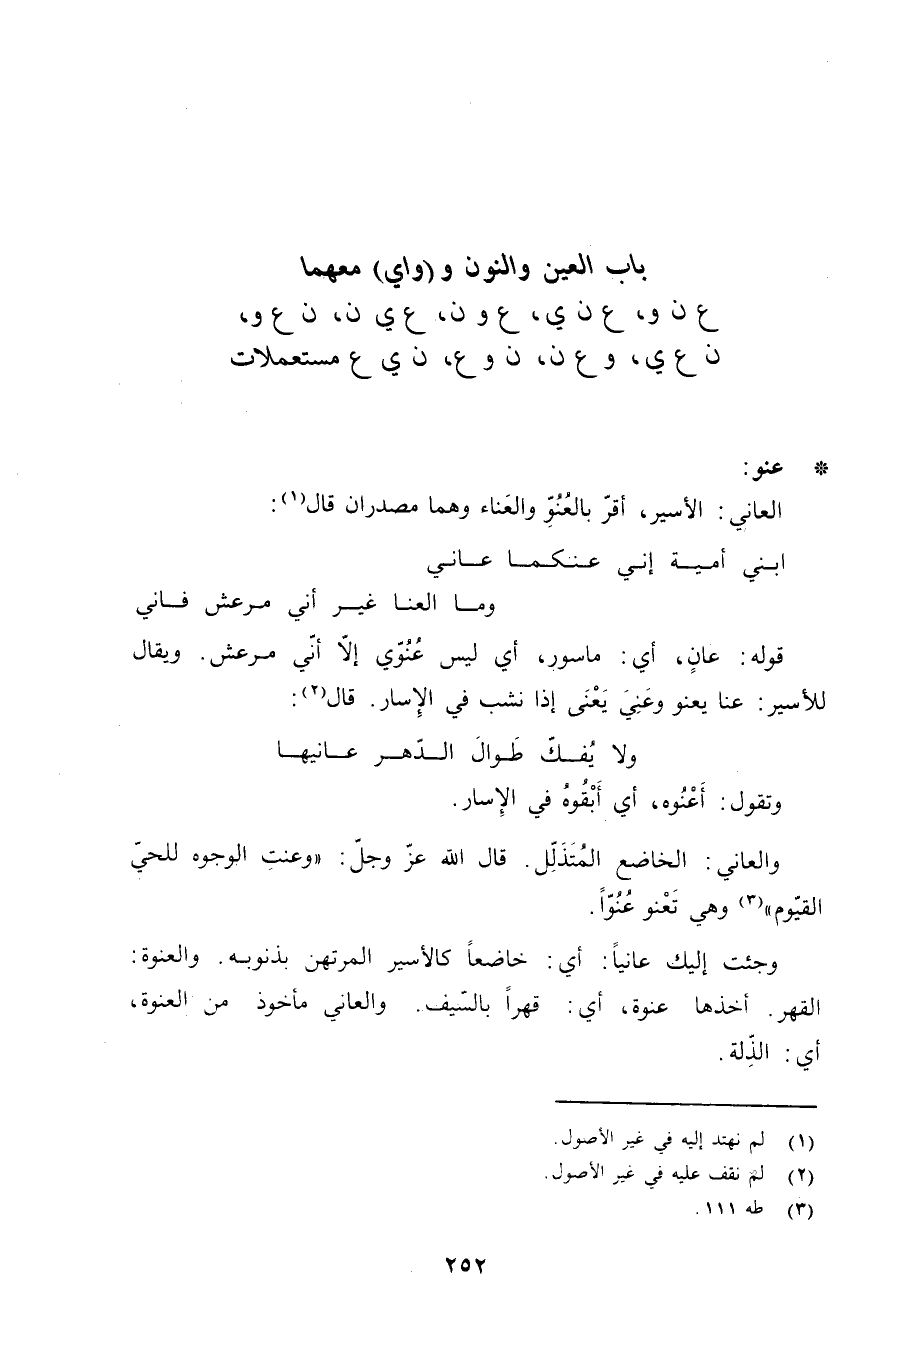 باب العين والنون و (واي) معهما
ع ن و، ع ن ي، ع و ن، ع ي ن، ن ع و،
ن ع ي، و ع ن، ن و ع، ن ي ع مستعملات
* عنو:
العاني: الأسير، أقرّ بالعُنُوِّ والعَناء وهما مصدران قال(١):
ابني أمية إني عنكما عاني
وما العنا غير أني مرعش فاني
قوله: عانٍ، أي: ماسور، أي ليس عُنُوّي إلاّ أنّي مرعش. ويقال
للأسير: عنا يعنو وعَنِيَ يَعْنَى إذا نشب في الإِسار. قال(٢):
ولا يُفكّ طَوالَ الدّهر عانيها
وتقول: أَعْنُوه، أي أَبْقُوهُ في الإِسار.
والعاني: الخاضع المُتَذَلِّل. قال الله عزّ وجلّ: «وعنتِ الوجوه للحيّ
القيّوم»(٣) وهي تَعْنو عُنُوّاً.
وجئت إليك عانياً: أي: خاضعاً كالأسير المرتهن بذنوبه. والعنوة:
القهر. أخذها عنوة، أي: قهراً بالسّيف. والعاني مأخوذ من العنوة،
أي: الذِّلة.
(١) لم نهتد إليه في غير الأصول.
(٢) لم نقف عليه في غير الأصول.
(٣) طه ١١١.
٢٥٢